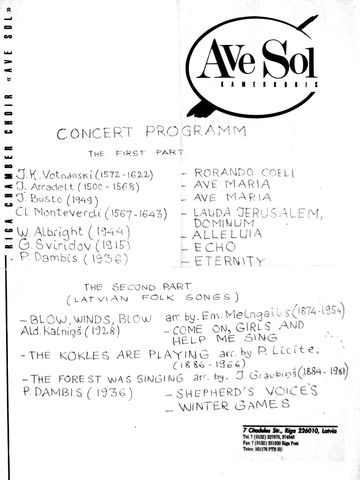 RIGA CHAMBER CHOIR «AVE SOL»
AVE SOL
KAMERKORIS
CONCERT PROGRAMM
THE FIRST PART
J.K. Votnanski (1572-1622) - RORANDO COELI
J. Arradelt (1500-1568) - AVE MARIA
J. Busto (1949) - AVE MARIA
Cl. Monteverdi (1567-1643) - LAUDA JERUSALEM,
DOMINUM
W. Albright (1944) - ALLELUIA
G. Sviridov (1915) - ECHO
P. Dambis (1936) - ETERNITY
THE SECOND PART
(LATVIAN FOLK SONGS)
- BLOW, WINDS, BLOW arr by. Em. Melngailis (1874-1954)
Ald. Kalniņš (1928) - COME ON, GIRLS AND
HELP ME SING
- THE KOKLES ARE PLAYING arr. by P. Licite,
(1886-1966)
- THE FOREST WAS SINGING arr. by. J. Graubiņš (1884-1961)
P. DAMBIS (1936) - SHEPHERD'S VOICES
- WINTER GAMES
7 Citadeles Str., Riga 226010, Latvia
Tel. 7 (0132) 327670, 374848
Fax: 7 (0132) 331920 Riga Post
Telex: 161178 PTB SU